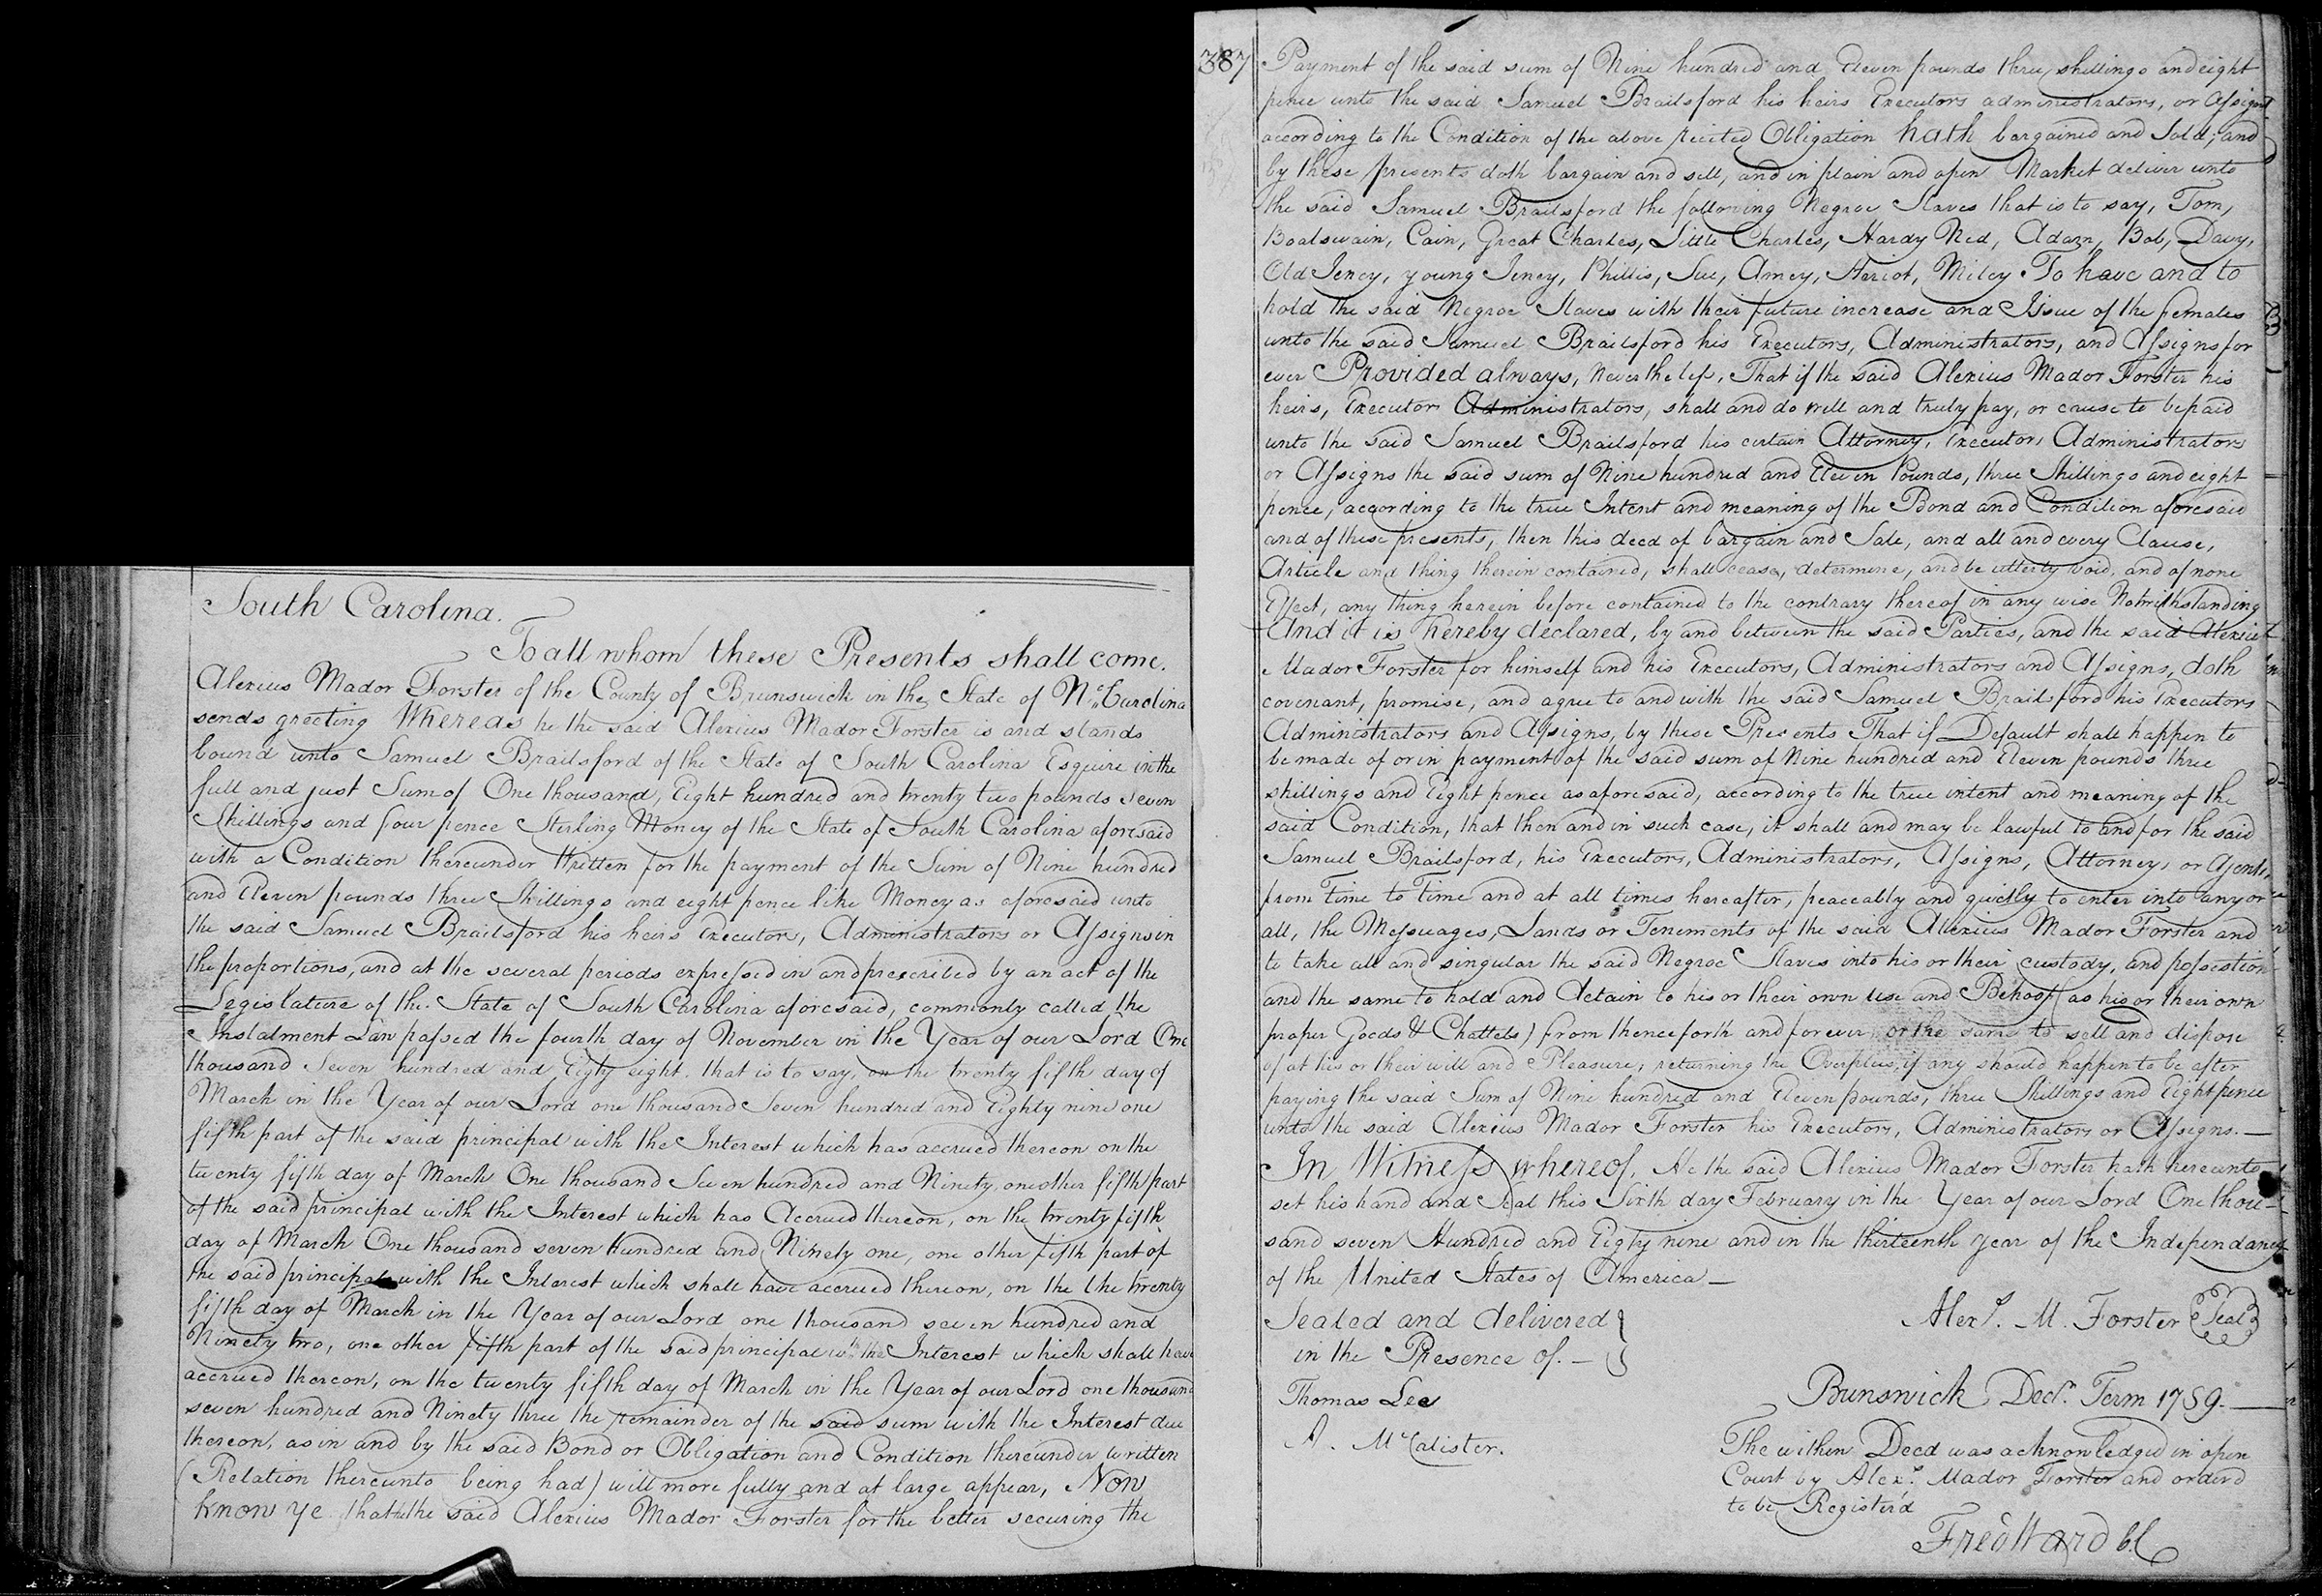 South Carolina.
To all whom these Presents shall come.
Alexius Mador Forster of the County of Brunswick in the State of No. Carolina
sends greeting Whereas he the said Alexius Mador Forster is and stands
bound unto Samuel Brailsford of the State of South Carolina Esquire in the
full and just Sum of One thousand, Eight hundred and twenty two pounds seven
Shillings and four pence Sterling Money of the State of South Carolina aforesaid
with a Condition thereunder Written for the payment of the Sum of Nine hundred
and Eleven pounds three Shillings and eight pence like Money as aforesaid unto
the said Samuel Brailsford his heirs Executors, Administrators or Assigns in
the proportions, and at the several periods expressed in and prescribed by an act of the
Legislature of the State of South Carolina aforesaid, commonly called the
Instalment Law passed the fourth day of November in the Year of our Lord One
thousand Seven hundred and Eigty eight. that is to say, on the twenty fifth day of
March in the Year of our Lord one thousand Seven hundred and Eighty nine one
fifth part of the said principal with the Interest which has accrued thereon on the
twenty fifth day of March One thousand Seven hundred and Ninety, one other fifth part
of the said principal with the Interest which has Accrued thereon, on the twenty fifth
day of March One thousand seven Hundred and Ninety one, one other fifth part of
the said principal with the Interest which shall have accrued thereon, on the the twenty
fifth day of March in the Year of our Lord one thousand seven hundred and
Ninety two, one other fifth part of the said principal wth the Interest which shall have
accrued thereon, on the twenty fifth day of March in the Year of our Lord one thousand
seven hundred and Ninety three the remainder of the said sum with the Interest due
thereon, as in and by the said Bond or Obligation and Condition thereunder written
(Relation thereunto being had) will more fully and at large appear, Now
know ye that the said Alexius Mador Forster for the better securing the
387
Payment of the said sum of Nine hundred and Eleven pounds three shillings and eight
pence unto the said Samuel Brailsford his heirs Executors administrators, or Assigns
according to the Condition of the above recited Obligation hath bargained and Sold; and
by these presents doth bargain and sell, and in plain and open Market deliver unto
the said Samuel Brailsford the following Negroe Slaves that is to say, Tom,
Boatswain, Cain, Great Charles, Little Charles, Hardy Ned, Adam, Bob, Davy,
Old Jency, young Jency, Phillis, Sue, Amey, Heriot, Miley To have and to
hold the said Negroe Slaves with their future increase and Issue of the females
unto the said Samuel Brailsford his Executors, Administrators, and Assigns for
ever Provided always, Never the less, That if the said Alexius Mador Forster his
heirs, Executors Administrators, shall and do well and truly pay, or cause to be paid
unto the said Samuel Brailsford his certain Attorney, Executors Administrators
or Assigns the said sum of Nine hundred and Eleven Pounds, three Shillings and eight
pence, according to the true Intent and meaning of the Bond and Condition aforesaid
and of these presents, then this deed of bargain and Sale, and all and every Clause,
Article and thing therein contained, shall cease, determine, and be utterly void, and of none
Effect, any thing herein before contained to the contrary thereof in any wise Notwithstanding
And it is hereby declared, by and between the said Parties, and the said Alexius
Mador Forster for himself and his Executors, Administrators and Assigns, doth
covenant, promise, and agree to and with the said Samuel Brailsford his Executors
Administrators and Assigns, by these Presents That if Default shall happen to
be made of or in payment of the said sum of Nine hundred and Eleven pounds three
shillings and Eight pence as aforesaid, according to the true intent and meaning of the
said Condition, that then and in such case, it shall and may be lawful to and for the said
Samuel Brailsford, his Executors, Administrators, Assigns, Attorneys or Agents,
from Time to Time and at all times hereafter, peaceably and quietly to enter into any or
all, the Messuages, Lands or Tenements of the said Alexius Mador Forster and
to take all and singular the said Negroe Slaves into his or their custody, and possession
and the same to hold and detain to his or their own use and Behoof (as his or their own
proper Goods & Chattels) from thenceforth and forever or the same to sell and dispose
of at his or their will and Pleasure; returning the Overplus, if any should happen to be after
paying the said Sum of Nine hundred and Eleven pounds, three Shillings and Eight pence
unto the said Alexius Mador Forster his Executors, Administrators or Assigns.—
In Witness whereof, He the said Alexius Mador Forster hath hereunto
set his hand and Seal this Sixth day February in the Year of our Lord One thou-
sand seven Hundred and Eigty nine and in the thirteenth year of the Independance
of the United States of America—
Sealed and delivered }
in the Presence of.— }
Alexs. M. Forster Seal
Thomas Lee
A. McCalister.
Bunswick Decr. Term 1789.—
The within Deed was acknowledged in open
Court by Alexs. Mador Forster and orderd
to be Registerd
Fred Ward